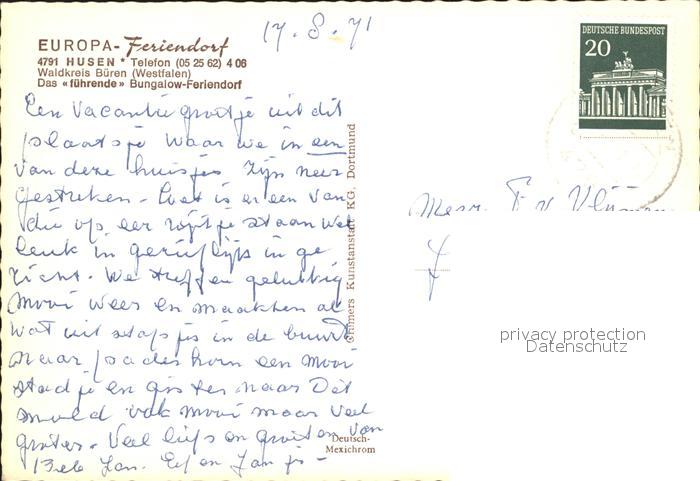 17.8.71
EUROPA-Feriendorf
4791 HUSEN * Telefon (05 25 62) 4 06
Waldkreis Büren (Westfalen)
Das «führende» Bungalow-Feriendorf
DEUTSCHE BUNDESPOST
20
Een vacantie groetje uit dit
plaatsje waar we in een
van deze huisjes zijn neer
gestreken. is er een van
die op een rijtje staan wel
leuk en geriefelijk in ge
richt. We treffen gelukkig
mooi weer en maakten al
wat uitstapjes in de buurt
naar Paderborn een mooi
stadje en gisteren naar Det
mold ook mooi maar veel
groter. Veel liefs en groeten van
Jan. en Jan
Mevr. F. v.
Cramers Kunstanstalt KG, Dortmund
Deutsch-
Mexichrom
privacy protection
Datenschutz